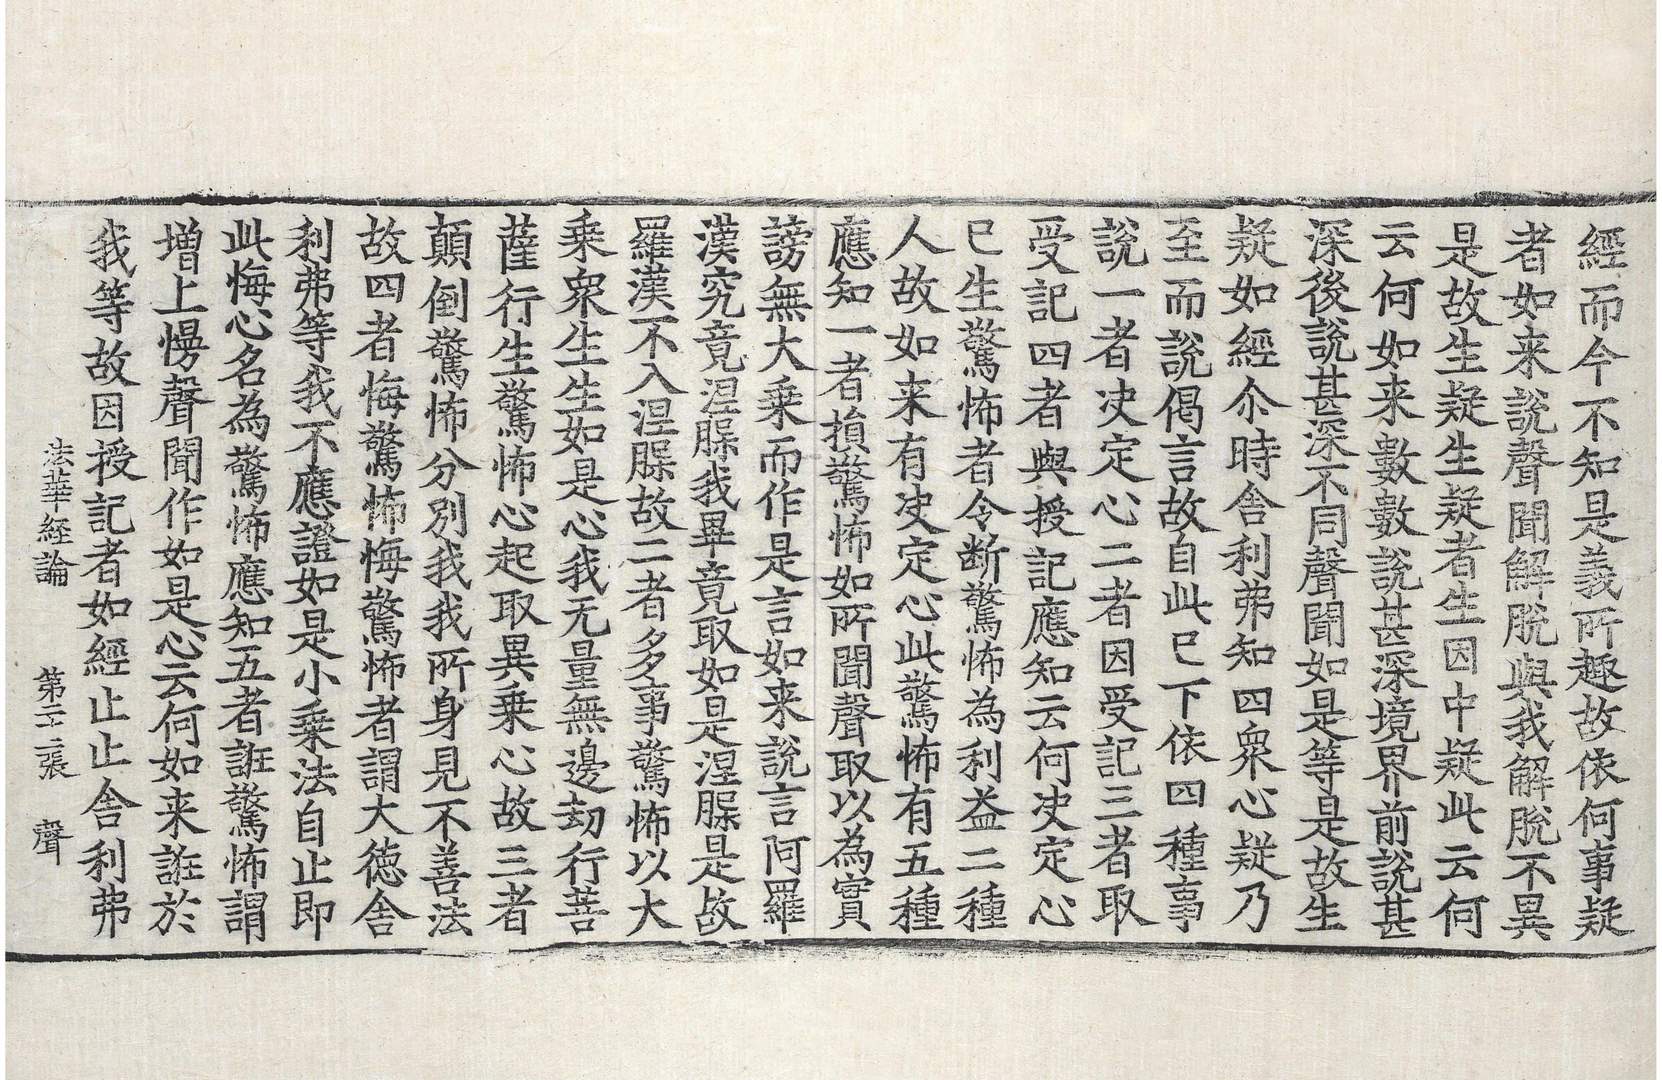 經而今不知是義所趣故依何事疑
者如来說聲聞解脫與我解脫不異
是故生疑生疑者生因中疑此云何
云何如来數數說甚深境界前說甚
深後說甚深不同聲聞如是等是故生
疑如經尒時舍利弗知四衆心疑乃
至而說偈言故自此已下依四種事
說一者决定心二者因受記三者取
受記四者與授記應知云何决定心
已生驚怖者令断驚怖為利益二種
人故如来有决定心此驚怖有五種
應知一者損驚怖如所聞聲取以為實
謗無大乗而作是言如来說言阿羅
漢究竟涅膄我畢竟取如是涅膄是故
羅漢不入涅膄故二者多事驚怖以大
乗衆生生如是心我无量無邊劫行菩
薩行生驚怖心起取異乗心故三者
顛倒驚怖分別我我所身見不善法
故四者悔驚怖悔驚怖者謂大徳舍
利弗等我不應證如是小乗法自止即
此悔心名為驚怖應知五者誑驚怖謂
增上慢聲聞作如是心云何如来誑於
我等故因授記者如經止止舍利弗
法華經論 第二十二張 聲